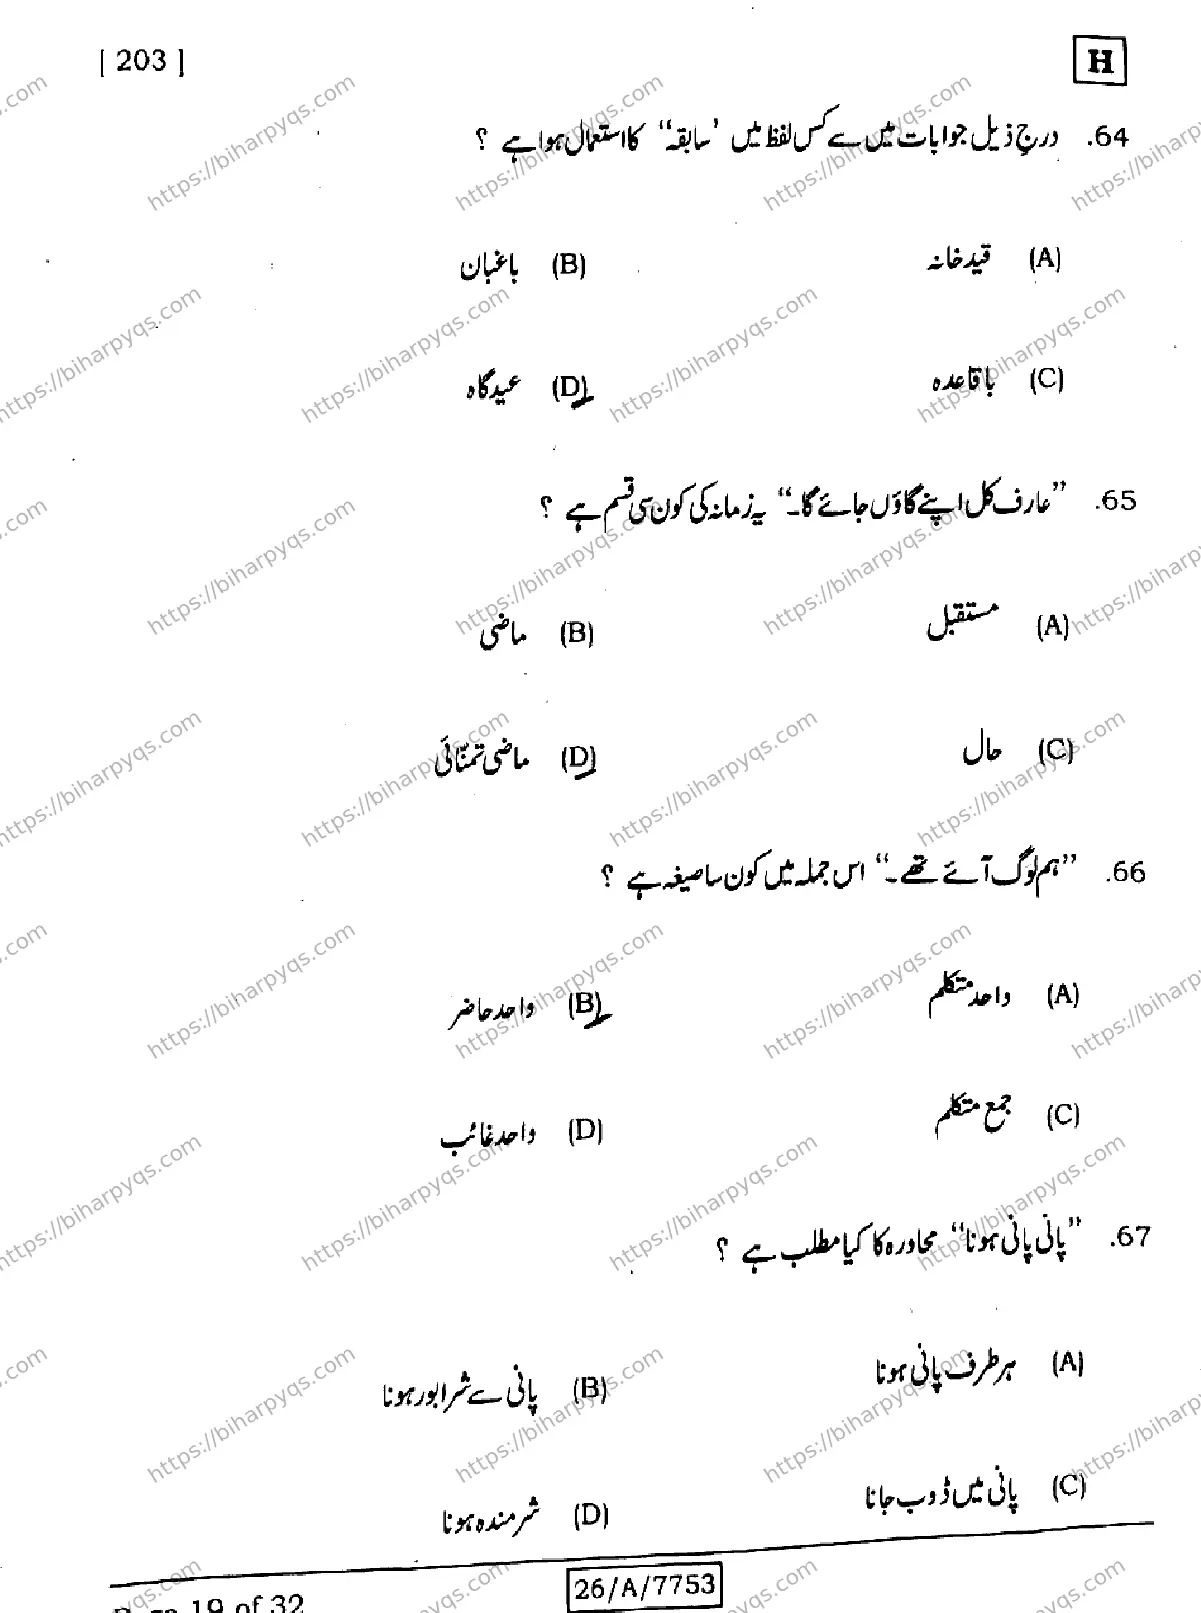 [ 203 ]
H
64. درج ذیل جوابات میں سے کس لفظ میں ’سابقہ‘‘ کا استعمال ہوا ہے ؟
(A) قید خانہ (B) باغبان
(C) باقاعدہ (D) عید گاہ
65. ’’عارف کل اپنے گاؤں جائے گا۔‘‘ یہ زمانہ کی کون سی قسم ہے ؟
(A) مستقبل (B) ماضی
(C) حال (D) ماضی تمنّائی
66. ’’ہم لوگ آئے تھے۔‘‘ اس جملہ میں کون سا صیغہ ہے ؟
(A) واحد متکلم (B) واحد حاضر
(C) جمع متکلم (D) واحد غائب
67. ’’پانی پانی ہونا‘‘ محاورہ کا کیا مطلب ہے ؟
(A) ہر طرف پانی ہونا (B) پانی سے شرابور ہونا
(C) پانی میں ڈوب جانا (D) شرمندہ ہونا
26/A/7753
Page 19 of 32
https://biharpyqs.com